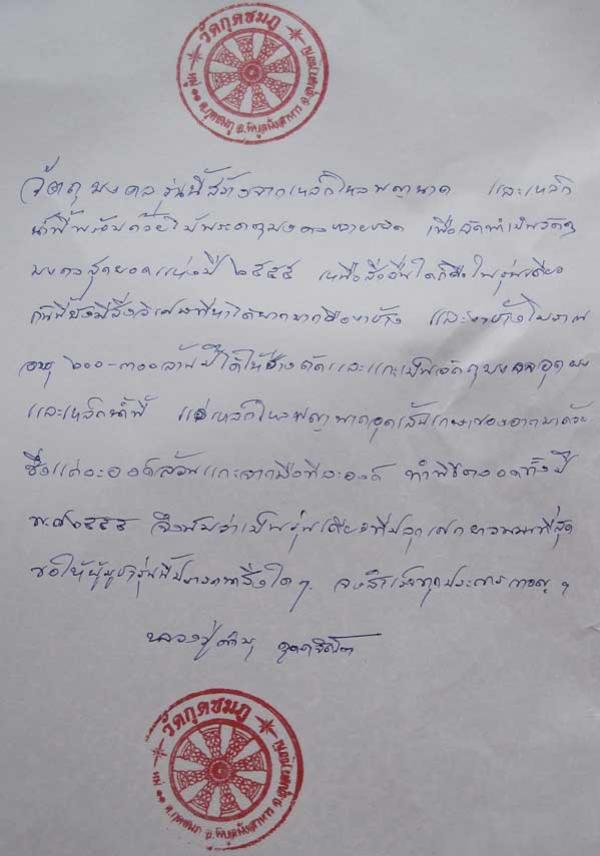 วัดกุดชมภู
หมู่ ๑๑ ต.กุดชมภู อ.พิบูลมังสาหาร จ.อุบลราชธานี
วัตถุมงคลรุ่นนี้สร้างจากเหล็กไหลพญานาค และเหล็ก
น้ำพี้พร้อมด้วย เพื่อจัดทำเป็นวัตถุ
มงคลสุดยอดแห่งปี ๒๕๕๕ เหนือสิ่งอื่นใดก็คือในรุ่นเดียว
กันนี้ยังมีสิ่งวิเศษที่หาได้ยากมากคืองาช้าง และงาช้างโบราณ
อายุ ๒๐๐-๓๐๐ ล้านปีได้ให้ช่างตัดและแกะเป็นวัตถุมงคลอุดผง
และเหล็กน้ำพี้ แร่เหล็กไหลพญานาคอุดเส้นเกษาของอาตมาด้วย
ซึ่งแต่ละองค์ล้วนแกะจากมือทีละองค์ ทำพิธีตลอดทั้งปี
พ.ศ ๒๕๕๕ จึงนับว่าเป็นรุ่นเดียวที่ปลุกเสกยาวนานที่สุด
ขอให้ผู้บูชารุ่นนี้ปรารถนาสิ่งใดๆ จงสำเร็จทุกประการเทอญ ฯ
หลวงปู่คำบุ คุตฺตจิตฺโต
วัดกุดชมภู
หมู่ ๑๑ ต.กุดชมภู อ.พิบูลมังสาหาร จ.อุบลราชธานี